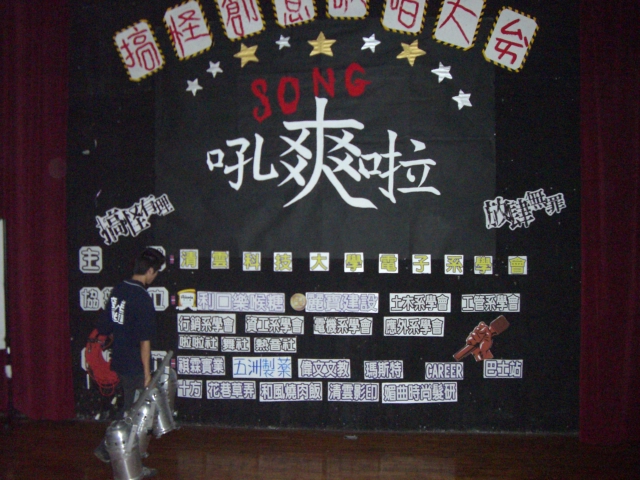 搞怪創意歌唱大賽
SONG
吼爽啦
搞怪有理
放肆無罪
主
清雲科技大學電子系學會
協
利口樂喉糖
土木系學會 工管系學會
行銷系學會 資工系學會 電機系學會 應外系學會
啦啦社 舞社 熱音社
五洲製藥 偉文文教 瑪斯特 CAREER 巴士站
十方 花巷草弄 和風燒肉飯 清雲影印 媚曲時尚髮研